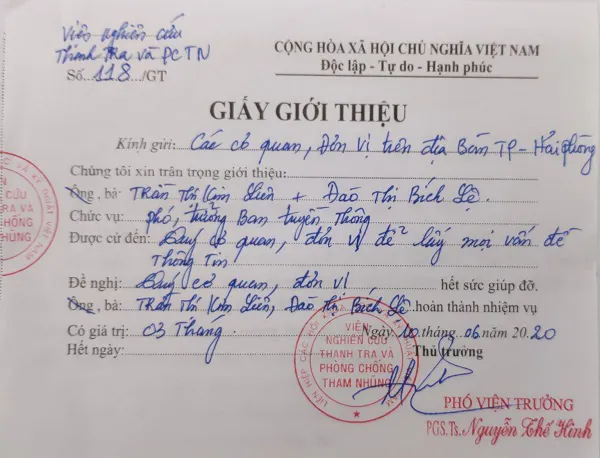 Viện nghiên cứu
Thanh tra và PCTN
Số...118.../GT
CỘNG HÒA XÃ HỘI CHỦ NGHĨA VIỆT NAM
Độc lập - Tự do - Hạnh phúc
GIẤY GIỚI THIỆU
Kính gửi: Các cơ quan, Đơn vị trên địa Bàn TP - Hải phòng
Chúng tôi xin trân trọng giới thiệu:
Ông, bà: Trần Thị Kim Liên + Đào Thị Bích Lệ.
Chức vụ: phó, trưởng Ban truyền Thông
Được cử đến: Quý cơ quan, đơn vị để lấy mọi vấn đề
Thông Tin
Đề nghị: Quý cơ quan, đơn vị hết sức giúp đỡ.
Ông, bà: Trần Thị Kim Liên, Đào Thị Bích Lệ. hoàn thành nhiệm vụ
Có giá trị: 03 Tháng. Ngày 10 tháng 06 năm 2020
Hết ngày: Thủ trưởng
VIỆN
NGHIÊN CỨU
THANH TRA VÀ
PHÒNG CHỐNG
THAM NHŨNG
PHÓ VIỆN TRƯỞNG
PGS.Ts. Nguyễn Thế Hinh